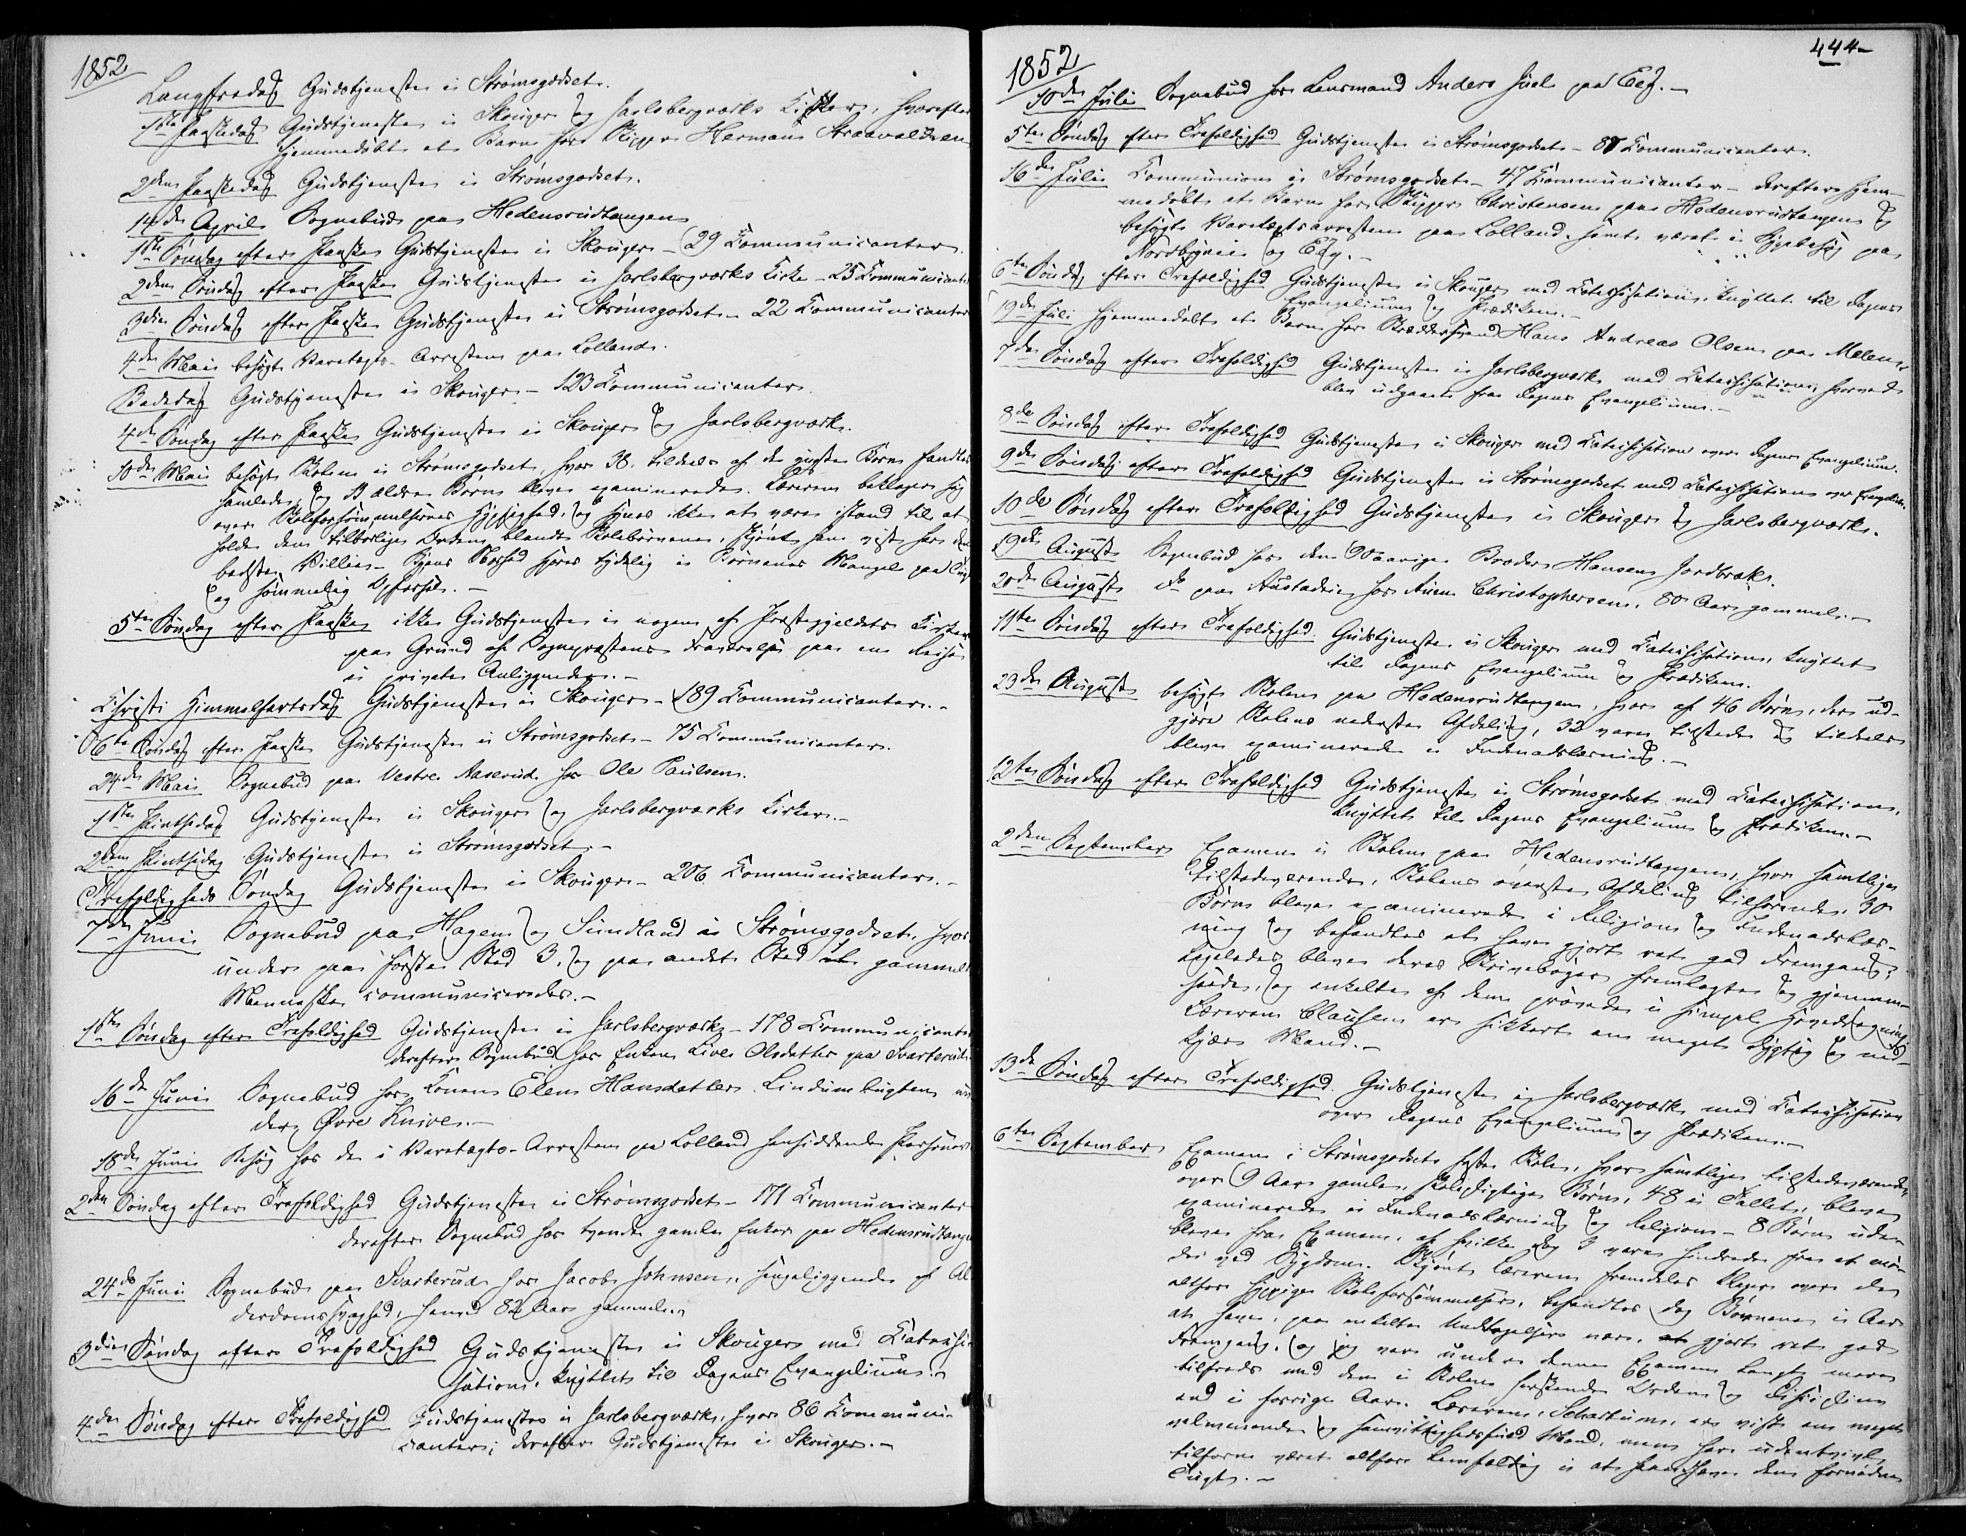 1852
Langfredag Gudstjeneste i Strømsgodset.
1ste Paaskedag Gudstjeneste i Skouger og Jarlsbergværks Kirker, hvorefter
hjemmedøbt et Barn hos Skipper Herman
2den Paaskedag Gudstjeneste i Strømsgodset.
14de April Sognebud paa Hedensrudtangen
1ste Søndag efter Paaske Gudstjeneste i Skouger – 29 Communicanter.
2den Søndag efter Paaske Gudstjeneste i Jarlsbergværks Kirke – 25 Communicanter
3die Søndag efter Paaske Gudstjeneste i Strømsgodset – 22 Communicanter
4de Mai besøgt Varetægts-Arresten paa Lolland.
Bededag Gudstjeneste i Skouger – 123 Communicanter.
4de Søndag efter Paaske Gudstjeneste i Skouger og Jarlsbergværk.
10de Mai besøgt Skolen i Strømsgodset, hvor 38, tildels af de yngste Børn fandtes
samlede, og ældre Børn bleve examinerede. Læreren beklager sig
over Skoleforsømmelsernes Hyppighed, og synes ikke at være istand til at
holde den tilbørlige Orden blandt Skolebørnene, skjønt han vist har den
bedste Villie – Hans spores tydelig i Børnenes Mangel paa Tugt
og sømmelig Opførsel. –
5te Søndag efter Paaske ikke Gudstjeneste i nogen af Præstegjeldets Kirker
paa Grund af Sognepræstens Fraværelse paa en Reise
i private Anliggender. –
Christi Himmelfartsdag Gudstjeneste i Skouger – 189 Communicanter. –
6te Søndag efter Paaske Gudstjeneste i Strømsgodset – 75 Communicanter.
24de Mai Sognebud paa Vestre Aaserud hos Ole Paulsen.
1ste Pintsedag Gudstjeneste i Skouger og Jarlsbergværks Kirker. –
2den Pintsedag Gudstjeneste i Strømsgodset. –
Trefoldigheds Søndag Gudstjeneste i Skouger – 206 Communicanter. –
7de Juni Sognebud paa Hagen og Sundland i Strømsgodset, hvor-
under paa første Sted 3, og paa andet Sted gammelt
Menneske communicerede. –
1ste Søndag efter Trefoldighed Gudstjeneste i Jarlsbergværk – 178 Communicanter
derefter Sognebud hos Enken Live Olsdatter paa Svarterud
16de Juni Sognebud hos Konen Elen Hansdatter Lindumbugten un-
der Øvre Knive. –
18de Juni Besøg hos de i Varetægts-Arresten paa Lolland hensiddende Personer.
2den Søndag efter Trefoldighed Gudstjeneste i Strømsgodset – 171 Communicanter
derefter Sognebud hos tvende gamle Enker paa Hedensrudtangen
24de Juni Sognebud paa Svarterud hos Jacob Johnsen, sengeliggende af Al-
derdomssvaghed, henved 82 Aar gammel.
3die Søndag efter Trefoldighed Gudstjeneste i Skouger med Catechi-
sation, knyttet til Dagens Evangelium. –
4de Søndag efter Trefoldighed Gudstjeneste i Jarlsbergværk, hvor 86 Communi-
canter; derefter Gudstjeneste i Skouger. –
444
1852
10de Juli Sognebud hos Lensmand Anders Juel paa Eeg. –
5te Søndag efter Trefoldighed Gudstjeneste i Strømsgodset – 87 Communicanter.
16de Juli Communion i Strømsgodset – 47 Communicanter – derefter hjem-
medøbt et Barn hos Skipper Christensen paa Hedensrudtangen og
besøgt Varetægtsarresten paa Lolland, samt været i Sygebesøg paa
Nordbyeie og Eeg. –
6te Søndag efter Trefoldighed Gudstjeneste i Skouger med Catechisation, knyttet til Dagens
Evangelium og Prædiken. –
19de Juli hjemmedøbt et Barn hos Skræddersvend Hans Andreas Olsen paa Mælen.
7de Søndag efter Trefoldighed Gudstjeneste i Jarlsbergværk med Catechisation, hvorved
blev udgaaet fra Dagens Evangelium. –
8de Søndag efter Trefoldighed Gudstjeneste i Skouger med Catechisation over Dagens Evangelium.
9de Søndag efter Trefoldighed Gudstjeneste i Strømsgodset med Catechisation over Evangeliet.
10de Søndag efter Trefoldighed Gudstjeneste i Skouger og Jarlsbergværk.
19de August Sognebud hos den 90aarige Broder Hansen Jordbræk.
20de August do paa Austad hos Anen Christophersen, 80 Aar gammel. –
11te Søndag efter Trefoldighed Gudstjeneste i Skouger med Catechisation, knyttet
til Dagens Evangelium og Prædiken.
23de August besøgt Skolen paa Hedensrudtangen, hvor af 46 Børn, der ud-
gjøre Skolens nederste Afdeling, 32 vare tilstede og tildels
bleve examinerede i Indenadslæsning. –
12te Søndag efter Trefoldighed Gudstjeneste i Strømsgodset med Catechisation,
knyttet til Dagens Evangelium og Prædiken. –
2den September Examen i Skolen paa Hedensrudtangen, hvor samtlige
tilstedeværende, Skolens øverste Afdeling tilhørende, 30
Børn bleve examinerede i Religion og Indenadslæs-
ning og befandtes at have gjort ret god Fremgang;
ligeledes bleve deres Skrivebøger fremlagte og gjennem-
saaede, og enkelte af dem prøvede i simpel Hovedregning.
Læreren Clausen er sikkert en meget dygtig og nid-
kjær Mand. –
13de Søndag efter Trefoldighed Gudstjeneste i Jarlsbergværk med Catechisation
over Dagens Evangelium og Prædiken. –
6te September Examen i Strømsgodsets faste Skole, hvor samtlige tilstedeværende
over 9 Aar gamle, skolepligtige Børn, 48 i Tallet, bleve
examinerede i Indenadslæsning og Religion – 8 Børn ude-
bleve fra Examen, af hvilke dog 3 vare hindrede fra at mø-
de ved Sygdom. Skjønt Læreren fremdeles klager over den
altfor hyppige Skoleforsømmelse, befandtes dog Børnene i Aar
at have, paa enkelte Undtagelser nær, gjort ret god
Fremgang, og jeg var under denne Examen langt mere
tilfreds med den i Skolen herskende Orden og Disciplin
end i forrige Aar. Læreren, Schartum, er vist en meget
velmenende og samvittighedsfuld Mand, men har udentvivl
tilforn været altfor lemfældig i at haandhæve den fornødne
Tugt. –